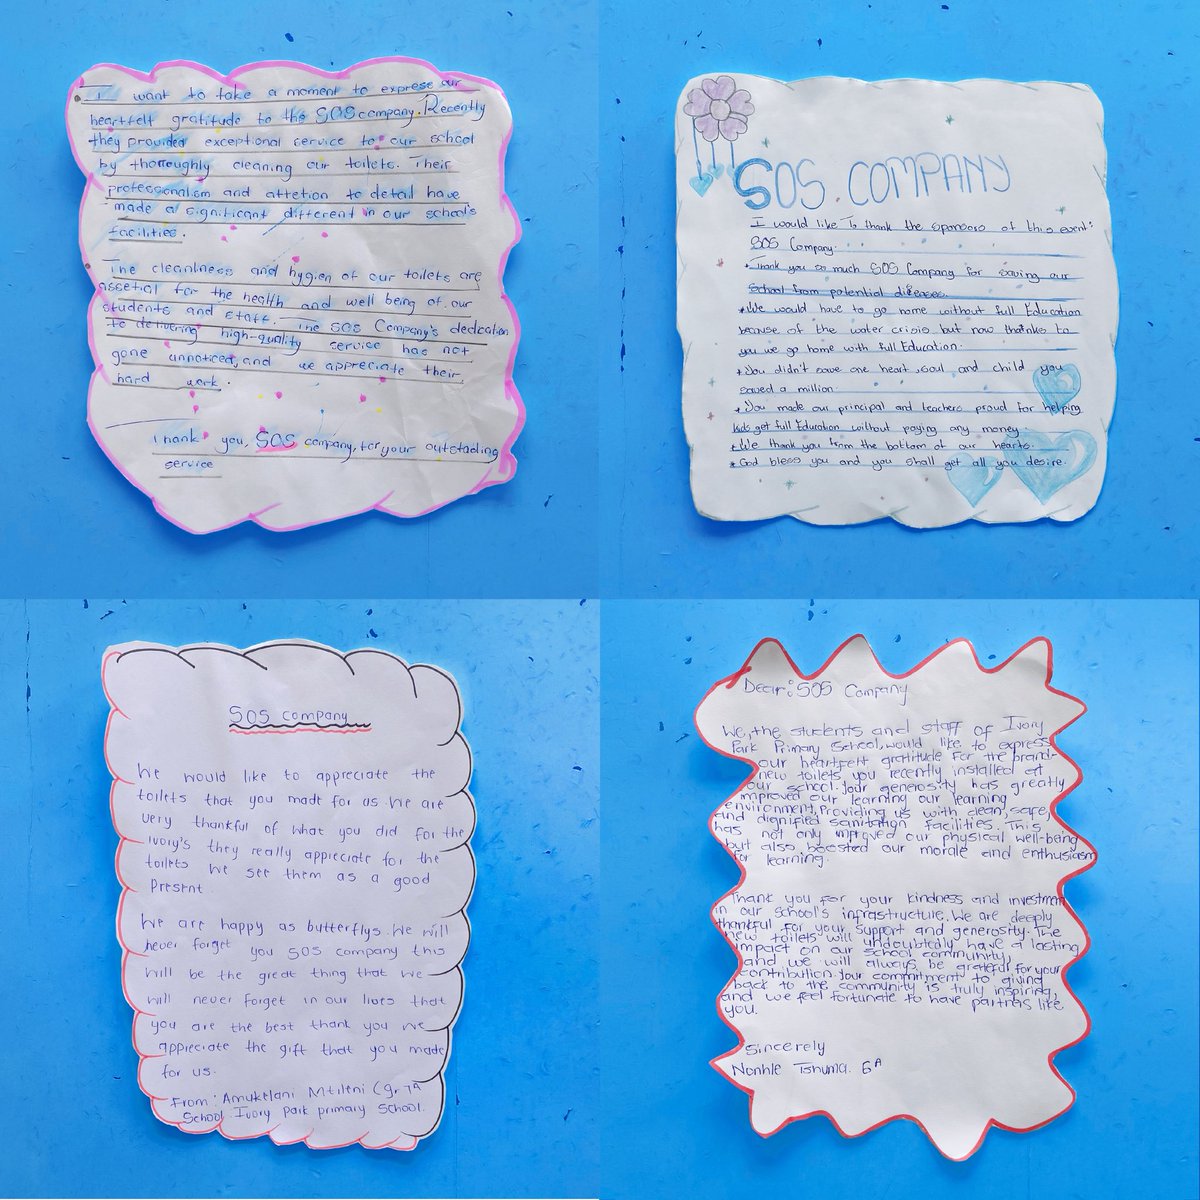 I want to take a moment to exprese our
heartfelt gratitude to the SOS company. Recently
they provided exceptional service to our school
by thorroughly cleaning our toilets. Their
professionalism and attetion to detail have
made a significant different in our school's
facilities.
The cleanlness and hygien of our toilets are
assetial for the health and well being of our
students and staff. The SOS Company's dedcation
to delivering high-quality service has not
gone unnoticed, and we appreciate their
hard work.
Thank you, SOS company, for your outstading
service
SOS COMPANY
I would like To thank the sponsors of this event:
SOS Company.
Thank you so much SOS Company for saving our
school from potential diseases.
We would have to go home without full Education
because of the water crisis but now thanks to
you we go home with full Education.
You didn't save one heart, soul and child you
saved a million.
You made our principal and teachers proud for helping
kids get full Education without paying any money.
We thank you from the bottom of our hearts.
God bless you and you shall get all you desire.
SOS company
We would like to appreciate the
toilets that you made for us. We are
very thankful of what you did for the
ivory's they really appreciate for the
toilets we see them as a good
present.
We are happy as butterflys. We will
never forget you SOS company this
will be the great thing that we
will never forget in our lives that
you are the best thank you we
appreciate the gift that you made
for us.
From: Amukelani Mtileni (gr 7A
School Ivory park primary School.
Dear: SOS Company
We, the students and staff of Ivory
Park Primary School, would like to express
our heartfelt gratitude for the brand-
new toilets you recently installed at
our school. Your generosity has greatly
improved our learning our learning
environment, Providing us with clean, safe,
and dignified sanitation facilities. This
has not only improved our physical well-being
but also boosted our morale and enthusiasm
for learning.
Thank you for your kindness and investment
in our school's infrastructure. We are deeply
thankful for your support and generosity. The
new toilets will undoubtedly have a lasting
impact on our school community,
and we will always be grateful for your
contribution. Your commitment to giving
back to the community is truly inspiring,
and we feel fortunate to have partnas like
you.
Sincerely
Nonhle Tshuma. 6A